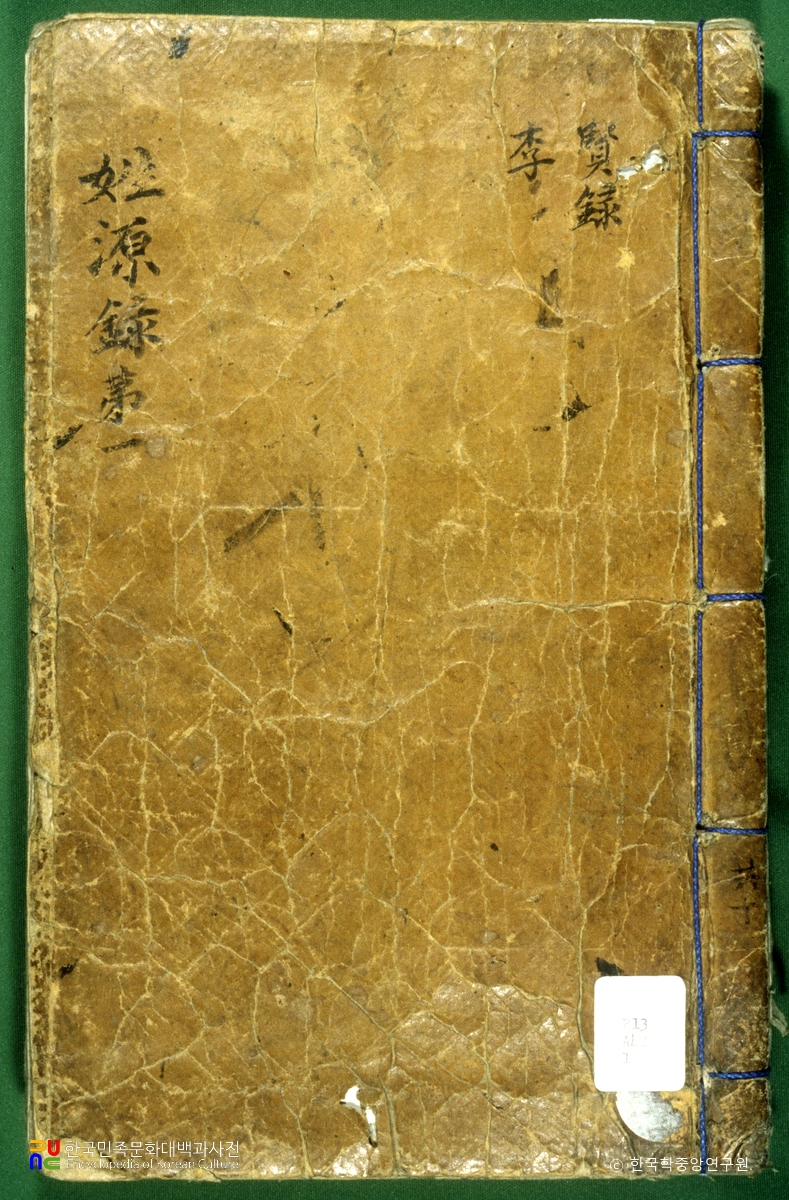 賢録
李
姓源録苐一
共十
한국민족문화대백과사전
Encyclopedia of Korean Culture
© 한국학중앙연구원